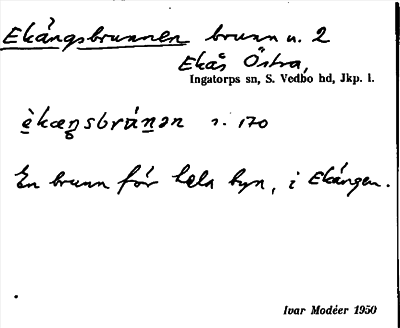 Ekångsbrunnen brunn u. 2
Ekås Östra,
Ingatorps sn, S. Vedbo hd, Jkp. l.
s. 170
En brunn för hela byn, i Ekången.
Ivar Modéer 1950